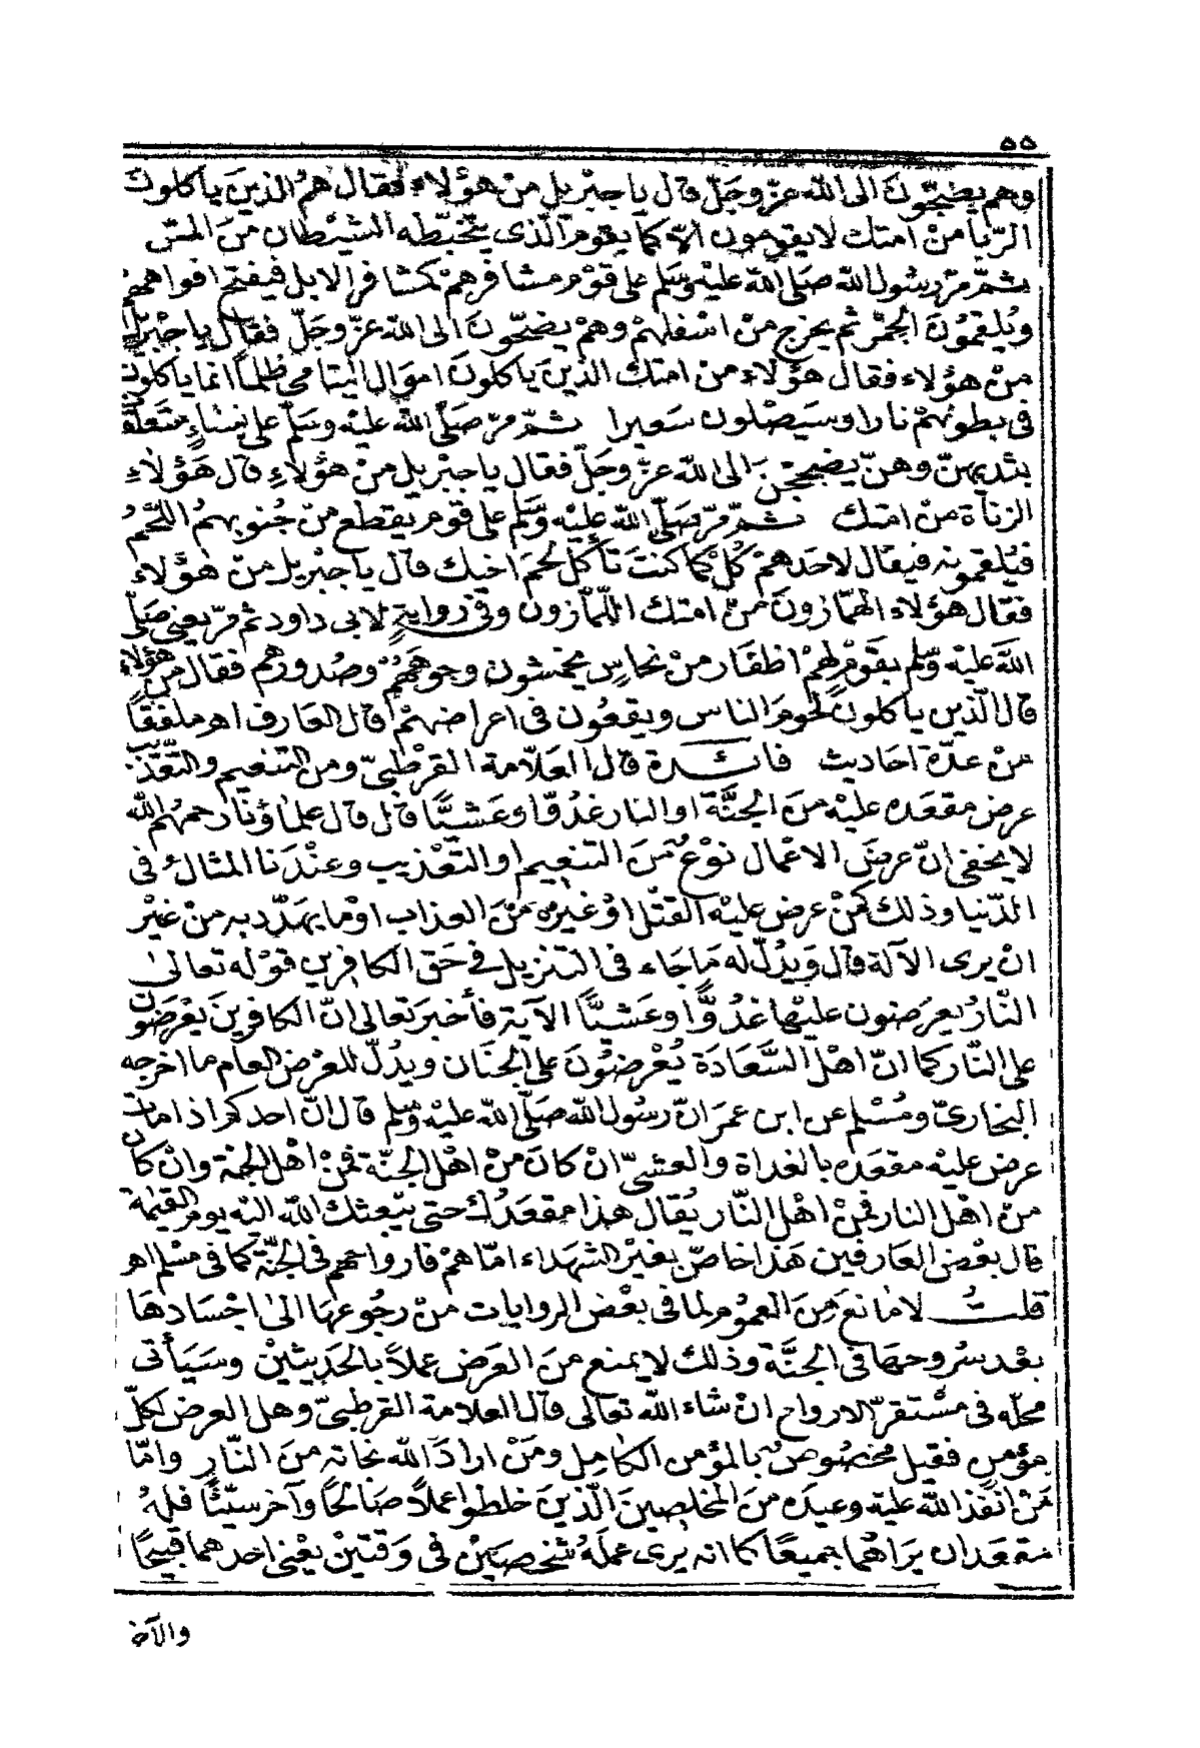 ٥٥
وهم يضجّون الى الله عزّ وجلّ قال يا جبريل من هؤلاء فقال هم الذين يأكلون
الرّبا من امتك لا يقومون الاّ كما يقوم الّذى يتخبّطه الشيطان من المسّ
ثمّ مرّ رسُول الله صَلى الله عليه وسَلم على قوْم مشافرهمْ كمشافر الابل فيفتح افواههمْ
ويُلقمُونَ الجمْر ثم يخرج منْ اسْفلهمْ وهمْ يضجّونَ الى الله عزّ وجَلّ فقال يا جبْريل
منْ هؤلاء فقال هؤلاء من امتك الذينَ ياكلونَ اموَال اليتامى ظلماً انما ياكلون
فى بطونهمْ نارا وسَيَصْلون سَعيرا ثمّ مرّ صَلّى الله عليْه وسَلم على نسَاءٍ متَعلقة
بثديهنّ وهنّ يضججْنَ الى الله عزّ وجَلّ فقال يا جبْريل منْ هؤلاءِ قال هَؤلاءِ
الزناة منْ امتك ثمّ مرّ صَلّى الله عليْه وسَّلم على قوم يقطع منْ جُنوبهمُ اللّحْمُ
فيُلقمونه فيقال لاحَدهمْ كُلْ كما كنتَ تأكل لحمَ اخيك قال يا جبْريل منْ هؤلاء
فقال هؤلاء الهمّازونَ منْ امتك اللمّازون وفى روايةٍ لابى داود ثم مرّ يعنى صَلّى
اللهَ عليْه وسّلم بقوْم لهمْ اظفار منْ نحاسٍ يخمشون وجوهَهُمْ وصُدورهم فقال من هؤلاء
قال الّذين ياكلونَ لحومَ الناس ويقعُون فى اعراضهمْ قال العَارف اهـ ملفقاً
منْ عدّة احَاديث فائدة قال العَلاّمة القرْطبىّ ومن التنعيم والتّعْذيب
عرض مقعَده عليْه منَ الجنَّة او النار غدُوّا وعَشيًّا قال قال علماؤنا رحمهُم الله
لا يخفى انّ عرضَ الاعْمال نوْعٌ منَ التنعيم او التّعْذيب وعنْدَنا المثالُ فى
الدّنيا وذلك كمنْ عرض عليْه القتْل اوْ غيْره منَ العذاب اوْ ما يهَدّد به منْ غيْر
انْ يرى الآلة قال ويَدُلّ له مَا جَاء فى التنزيل فى حَق الكافرين قوْله تعالى
النّارُ يعرَضون عليْها غدُوًّا وعَشيًّا الآية فأخبَر تعالى انّ الكافرينَ يعْرَضون
على النّار كما انّ اهْل السَّعَادَة يُعْرضُونَ على الجنَان ويدُلّ للعَرض العام ما اخرجه
البخارىّ ومُسْلم عن ابن عمَر انّ رسُول الله صَلّى الله عليْه وسّلم قال انّ احدكم اذا مات
عرض عليْه مقعَده بالغداة والعشىّ انْ كانَ منْ اهْل الجنّة فمنْ اهْل الجنة وانْ كان
منْ اهْل النار فمنْ اهْل النّار يُقال هذا مقعَدُك حتى يبْعثك الله اليْه يوم القيٰمة
قال بعْض العَارفين هَذا خاصّ بغيْر الشهَداء امّا همْ فارواحهم فى الجنّة كما فى مسْلم اهـ
قلتُ لا مَانعَ منَ العمُوم لما فى بعْض الروايات منْ رجُوعهَا الىٰ اجْسَادهَا
بعْد سرُوحهَا فى الجنَّة وذلك لا يمنع منَ العَرض عملاً بالحَديثيْن وسَيَأتى
محلّه فى مسْتقرّ الارواح انْ شاء الله تعَالى قال العلامة القرطبىّ وهل العرض لكلّ
مؤمن فقيل مخصُوصٌ بالمؤمن الكامِل ومَنْ ارادَ الله نجاته منَ النّار وامّا
منْ انفذ الله عليْه وعيدَه منَ المخلصِينَ الّذينَ خلطوا عملاً صَالحًا وآخر سيّئًا فلهُ
مقعَدان يَراهُما جميعًا كما انه يرى عملَهُ شخصَيْن فى وقتيْنْ يعْنى احدهما قبيحًا
والآخر